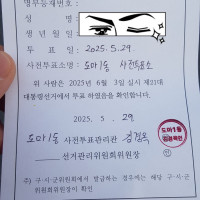 명부등재번호 :
성 명 :
생 년 월 일
투 표 일 : 2025. 5. 29.
사전투표소명 : 도마1동 사전투표소
위 사람은 2025년 6월 3일 실시 제21대
대통령선거에서 투표 하였음을 확인합니다.
2025. 5. 29.
도마1동 사전투표관리관
선거관리위원회위원장
도마1동
주 : 구·시·군위원회에서 발급하는 경우에는 해당 구·시·군
위원회위원장이 확인